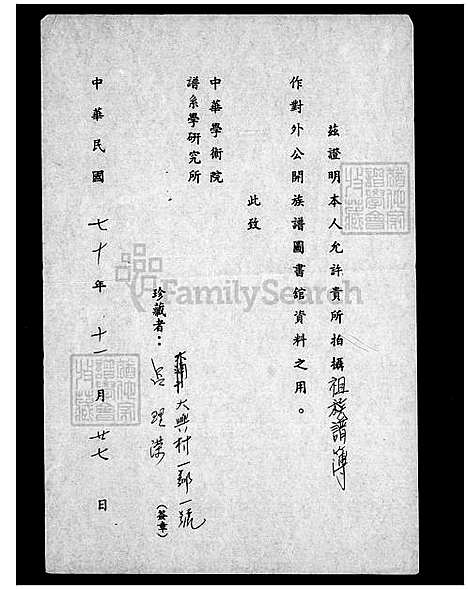 茲證明本人允許貴所拍攝祖族譜簿
作對外公開族譜圖書館資料之用。
此致
中華學術院
譜系學研究所
大興村一鄰一號
珍藏者：呂理榮
(簽章)
中華民國七十年十一月廿七日
FamilySearch